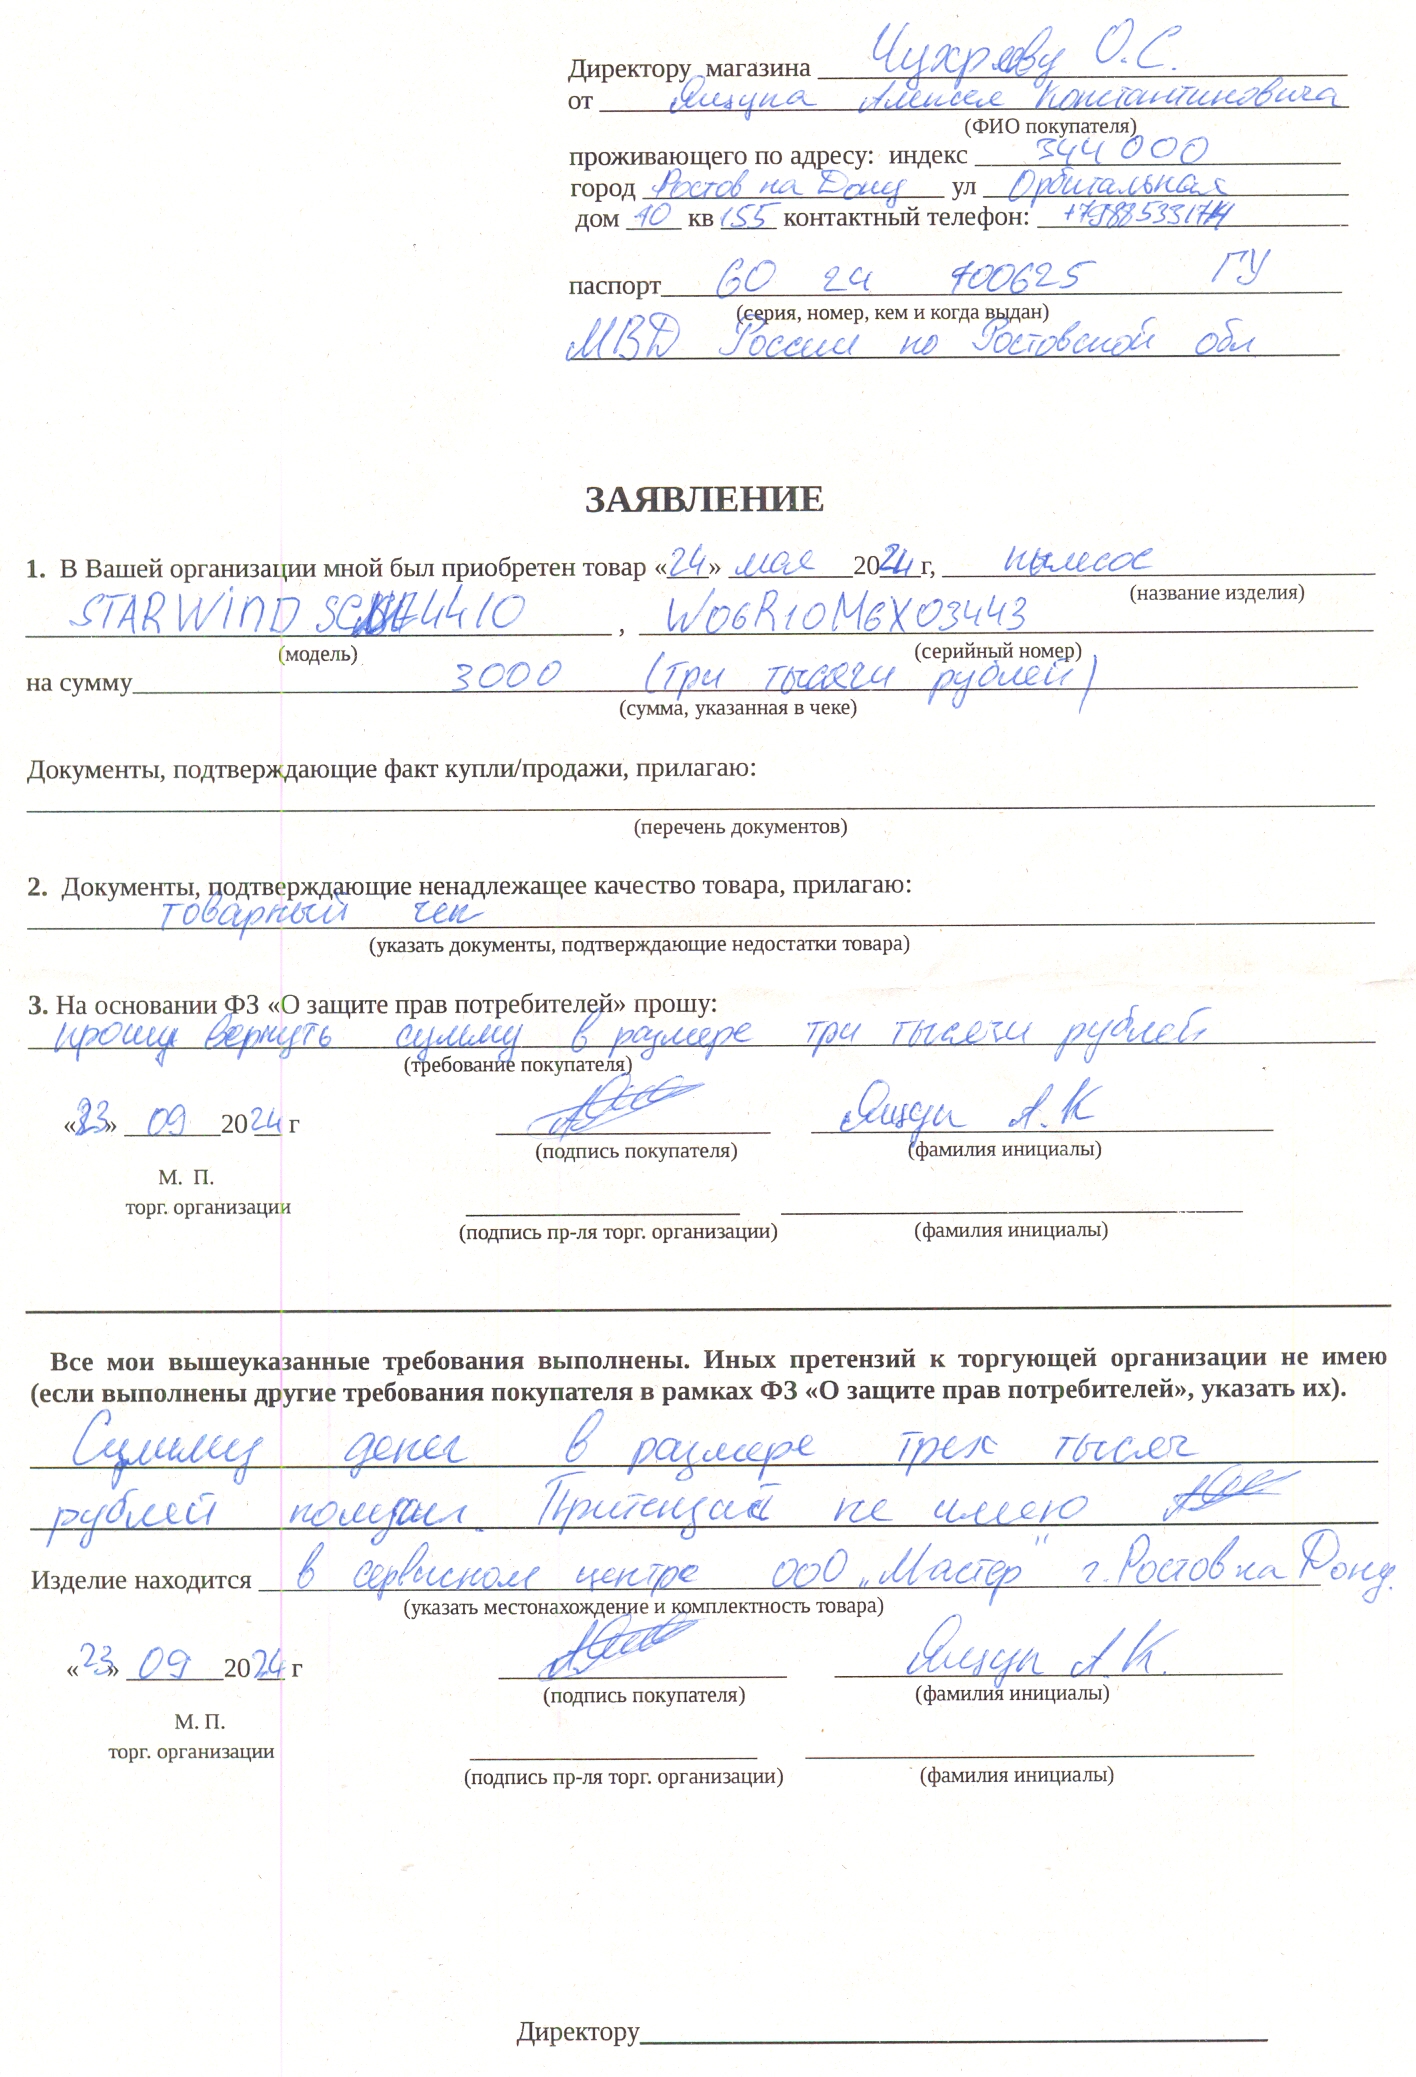 Директору магазина Чухряеву О.С.
от Ящука Алексея Константиновича
(ФИО покупателя)
проживающего по адресу: индекс 344000
город Ростов на Дону ул Орбитальная
дом 10 кв 155 контактный телефон:
паспорт 60 24 700625 ГУ
(серия, номер, кем и когда выдан)
МВД России по Ростовской обл
ЗАЯВЛЕНИЕ
1. В Вашей организации мной был приобретен товар «24» мая 2024 г, пылесос
(название изделия)
STARWIND 4410 , W06R10M6X03443
(модель) (серийный номер)
на сумму 3000 (три тысячи рублей)
(сумма, указанная в чеке)
Документы, подтверждающие факт купли/продажи, прилагаю:
(перечень документов)
2. Документы, подтверждающие ненадлежащее качество товара, прилагаю:
товарный чек
(указать документы, подтверждающие недостатки товара)
3. На основании ФЗ «О защите прав потребителей» прошу:
прошу вернуть сумму в размере три тысячи рублей
(требование покупателя)
«23» 09 2024 г А.К
(подпись покупателя) (фамилия инициалы)
М. П.
торг. организации
(подпись пр-ля торг. организации) (фамилия инициалы)
Все мои вышеуказанные требования выполнены. Иных претензий к торгующей организации не имею
(если выполнены другие требования покупателя в рамках ФЗ «О защите прав потребителей», указать их).
Сумму денег в размере трех тысяч
рублей получил. Притензий не имею
Изделие находится в сервисном центре ООО „Мастер" г. Ростов на Дону.
(указать местонахождение и комплектность товара)
«23» 09 2024 г А.К.
(подпись покупателя) (фамилия инициалы)
М. П.
торг. организации
(подпись пр-ля торг. организации) (фамилия инициалы)
Директору